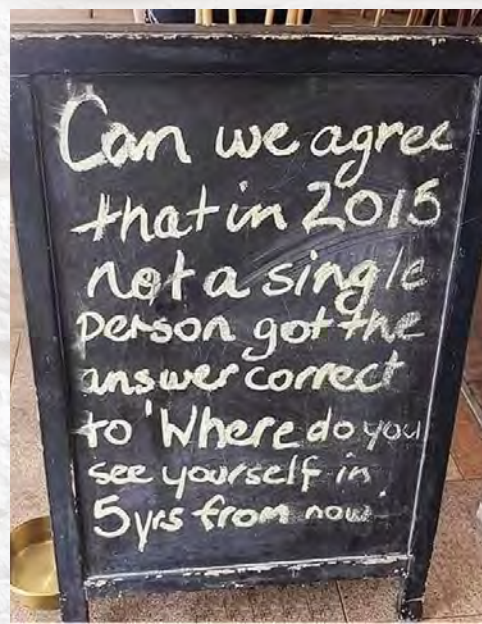 Can we agree
that in 2015
not a single
person got the
answer correct
to 'Where do you
see yourself in
5yrs from now'